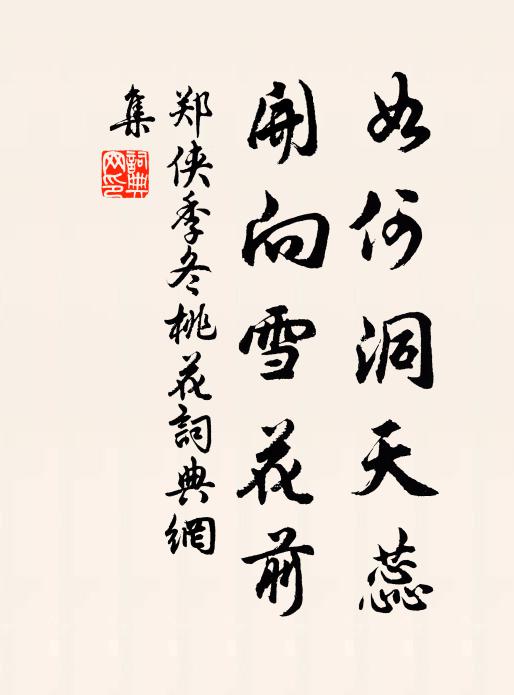 如何洞天蕊
開向雪花前
郑侠季冬桃花詞典網
集
詞典
网印